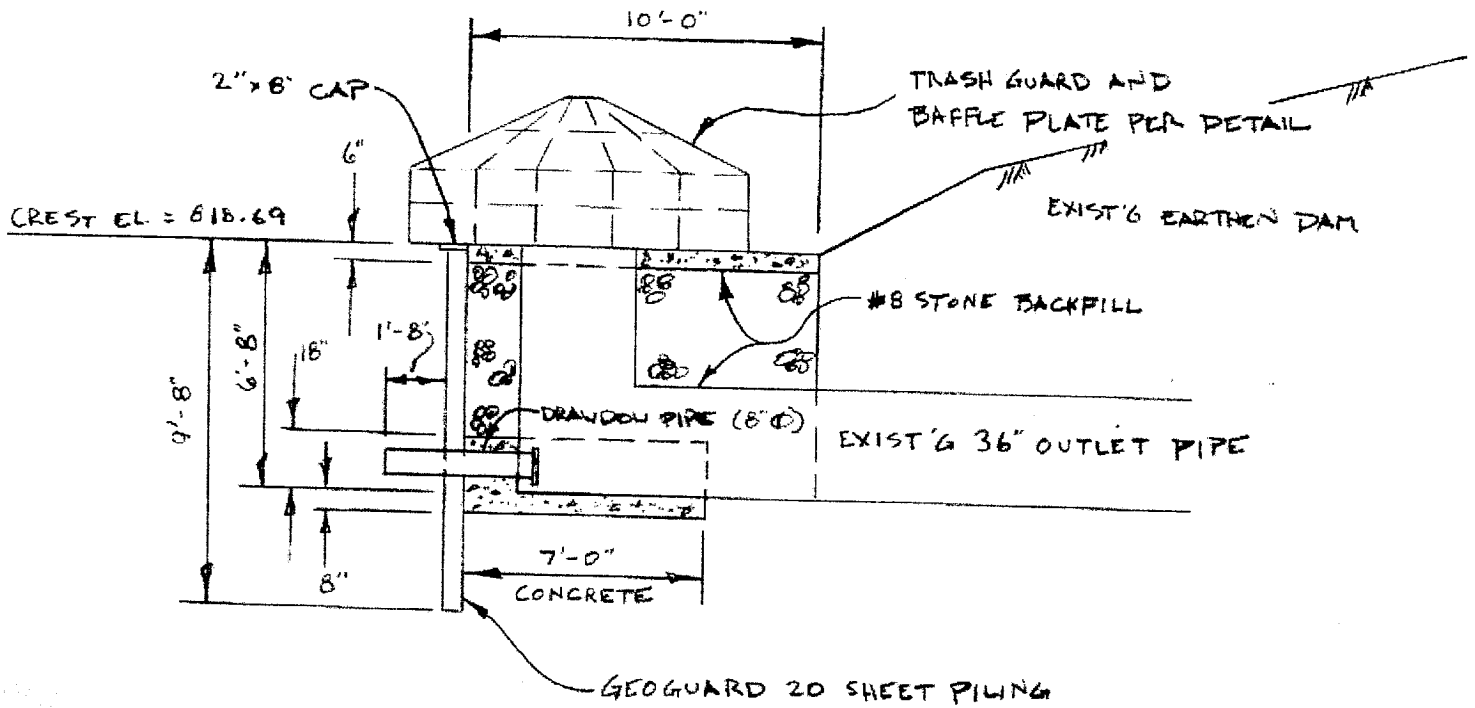 10'-0"
2"x8" CAP
TRASH GUARD AND
BAFFLE PLATE PER DETAIL
6"
CREST EL. = 618.69
EXIST'G EARTHEN DAM
#8 STONE BACKFILL
1'-8"
18"
6'-8"
9'-8"
DRAWDOW PIPE (8"Φ)
EXIST'G 36" OUTLET PIPE
8"
7'-0"
CONCRETE
GEOGUARD 20 SHEET PILING